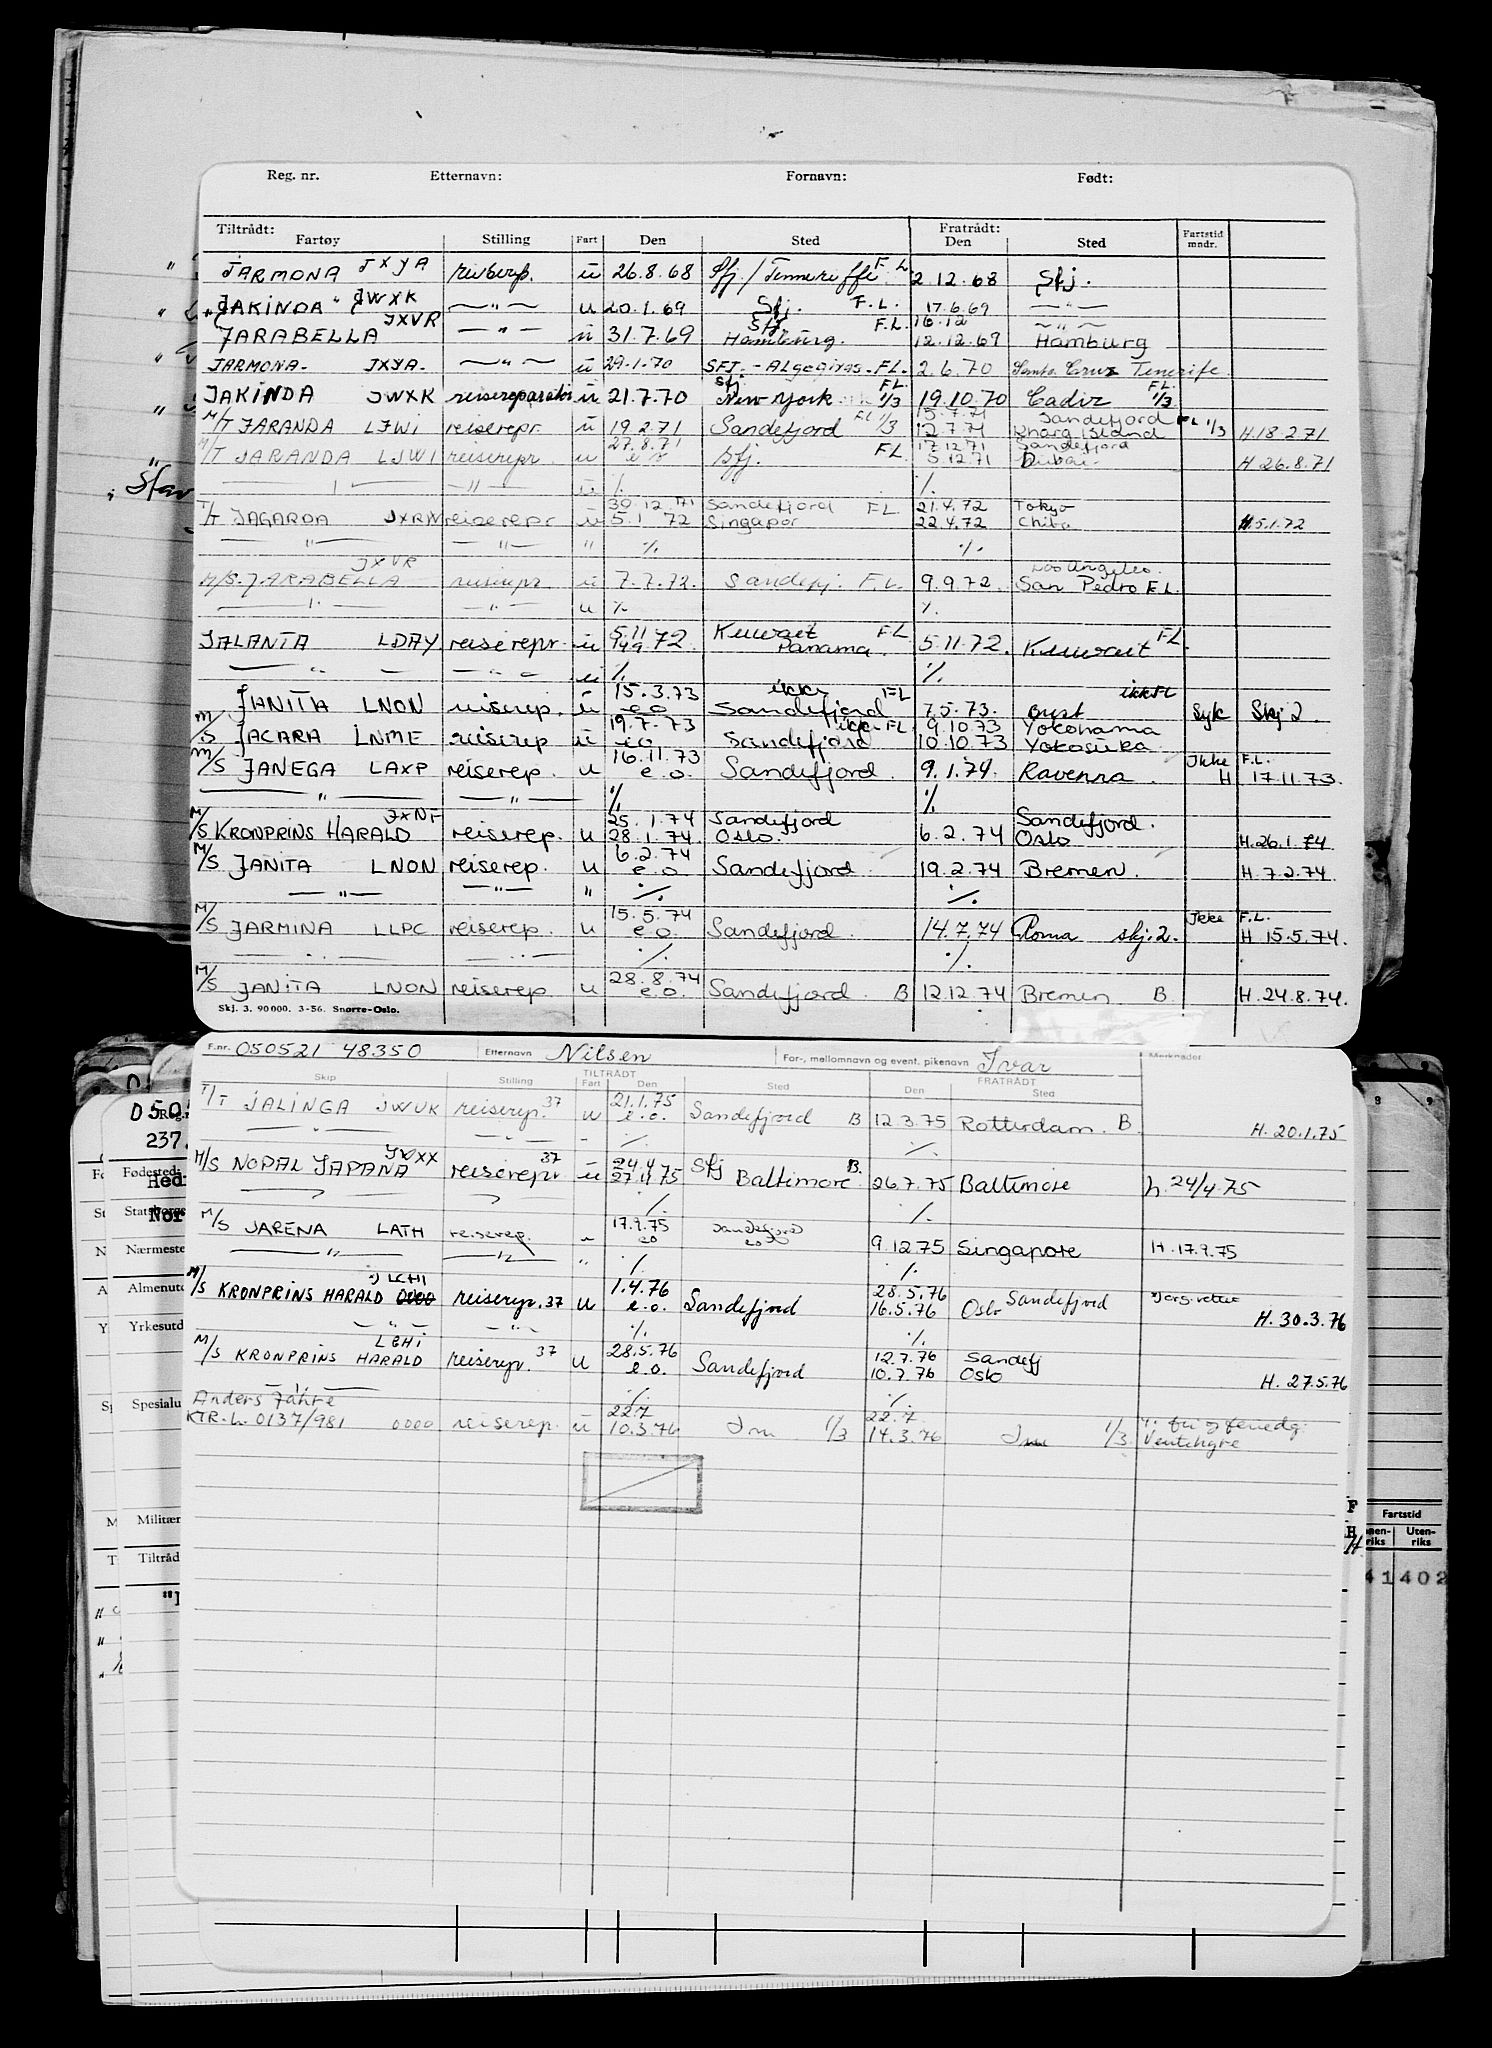 Reg. nr. Etternavn: Fornavn: Født:
Tiltrådt: Fratrådt: Fartstid
Fartøy Stilling Fart Den Sted Den Sted mndr.
JARMONA JXYA u 26.8.68 Sfj./Teneriffe F.L 2.12.68 Sfj.
"JAKINDA" JWXK — " — u 20.1.69 Sfj. F.L. 17.6.69 — " —
JXVR Sfj F.L. 16.12 — " —
JARABELLA — " — u 31.7.69 Hamburg. 12.12.69 Hamburg
JARMONA. JXYA. — " — u 29.1.70 SFJ. - Algeciras. FL. 2.6.70 Santa Cruz Tenerife.
Sfj FL. FL.
JAKINDA JWXK reisereparatør u 21.7.70 New York 1/3 19.10.70 Cadiz 1/3
15.7.71 Sandefjord
M/T JARANDA LJWI reiserepr. u 19.2.71 Sandefjord FL 1/3 12.7.71 Kharg Island FL 1/3 H.18.2.71
27.8.71 17.12.71 Sandefjord
M/T JARANDA LJWI reiserepr. u e o Sfj. F.L. 5.12.71 Dubai. H 26.8.71
— " — — " — u ·/. ·/.
30.12.71 Sandefjord FL 21.4.72 Tokyo
T/T JAGARDA JXRN reiserepr u 5.1.72 Singapor 22.4.72 Chiba H.5.1.72
— " — — " — " ·/. ·/.
JXVR Los Angeles.
M/S. JARABELLA reiserepr u 7.7.72. Sandefj. F.L. 9.9.72. San Pedro F.L.
— " — — " — u ·/. ·/.
5.11 Kuwait FL FL
JALANTA LDAY reiserepr. u 14.9 72. Panama. 5.11.72. Kuwait
— " — — " — u ·/. ·/.
15.3.73 ikke FL ikke FL
JANITA LNON reiserep. u e o Sandefjord 7.5.73. Brest Syk Skj 2.
19.7.73 ikke FL. 9.10.73 Yokohama
M/S JACARA LNME reiserep u e o Sandefjord 10.10.73 Yokosuka
16.11.73 Ikke F.L.
M/S JANEGA LAXP reiserep. u e.o. Sandefjord. 9.1.74. Ravenna. H 17.11.73.
— " — — " — ·/. ·/.
JXNF 25.1.74 Sandefjord Sandefjord.
M/S KRONPRINS HARALD reiserep. u 28.1.74. Oslo. 6.2.74 Oslo H.26.1.74
6.2.74
M/S JANITA LNON reiserep. u e.o. Sandefjord. 19.2.74 Bremen. H.7.2.74.
— " — — " — " ·/. ·/.
15.5.74 Ikke F.L.
M/S JARMINA LLPC reiserep. u e.o. Sandefjord. 14.7.74 Roma skj.2. H 15.5.74.
— " — — " — ·/. ·/.
28.8.74
M/S JANITA LNON reiserep u e.o. Sandefjord. B 12.12.74 Bremen B H.24.8.74.
Skj. 3. 90000. 3-56. Snorre-Oslo.
F.nr. 050521 48350 Etternavn Nilsen For-, mellomnavn og event. pikenavn Ivar Merknader
TILTRÅDT FRATRÅDT
Skip Stilling Fart Den Sted Den Sted
21.1.75
T/T JALINGA JWUK reiserep. 37 u e.o. Sandefjord B 12.3.75 Rotterdam. B. H. 20.1.75
— " — — " — ·/. ·/.
24.4
M/S NOPAL JAPANA reiserepr 37 u 27.4.75 Sfj Baltimore B. 26.7.75 Baltimore h. 24/4.75
·/. ·/.
17.9.75 Sandefjord
M/S JARENA LATH reiserep. u eo eo 9.12.75 Singapore H.17.9.75
— " — — " — " ·/. ·/.
LEHI 1.4.76 28.5.76 Sandefjord
M/S KRONPRINS HARALD reiserep. 37 u e.o. Sandefjord 16.5.76 Oslo H. 30.3.76
— " — — " — ·/. ·/.
LEHI 28.5.76 12.7.76 Sandefj
M/S KRONPRINS HARALD reiserepr. 37 u e.o. Sandefjord 10.7.76 Oslo H. 27.5.76
Anders Jahre ·/. ·/.
22.7 22.7
KTR.L. 0137/981 0000 reiserep. u 10.3.76 1/3 14.3.76 1/3 Venterhyre
D505
237.
Fødested:
Hed
Nor
Nærmeste
Almenutd
Yrkesutd
Spesialu
Militær
Tiltråd
Fartstid
Uten-
riks
41402